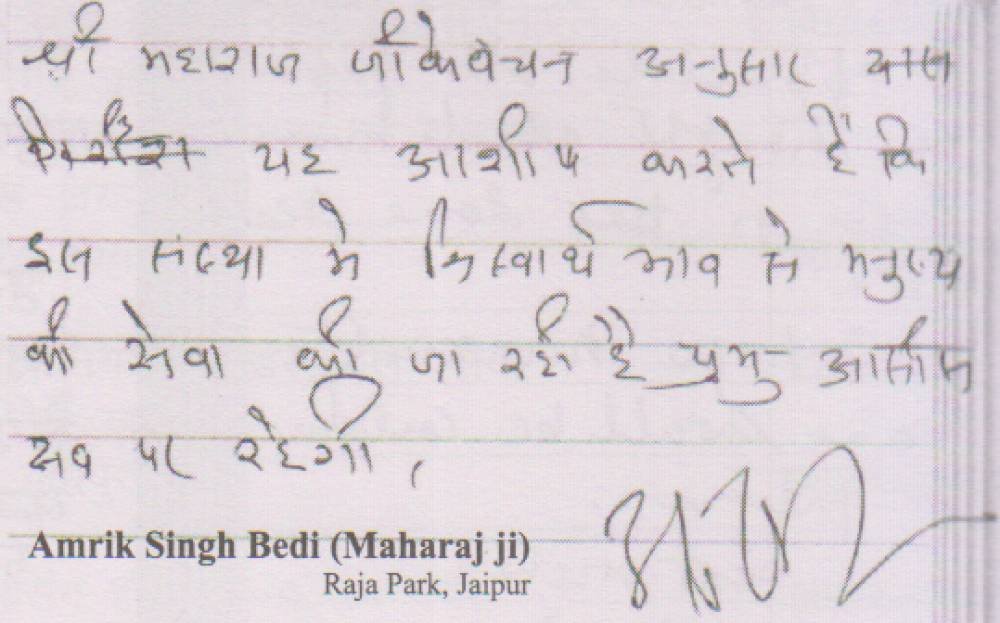 श्री महाराज जी के वचन अनुसार
यह आशीष करते हैं कि
इस संस्था मे निस्वार्थ भाव से मनुष्य
की सेवा की जा रही है प्रभु आसीस
सब पर रहेगी,
Amrik Singh Bedi (Maharaj ji)
Raja Park, Jaipur